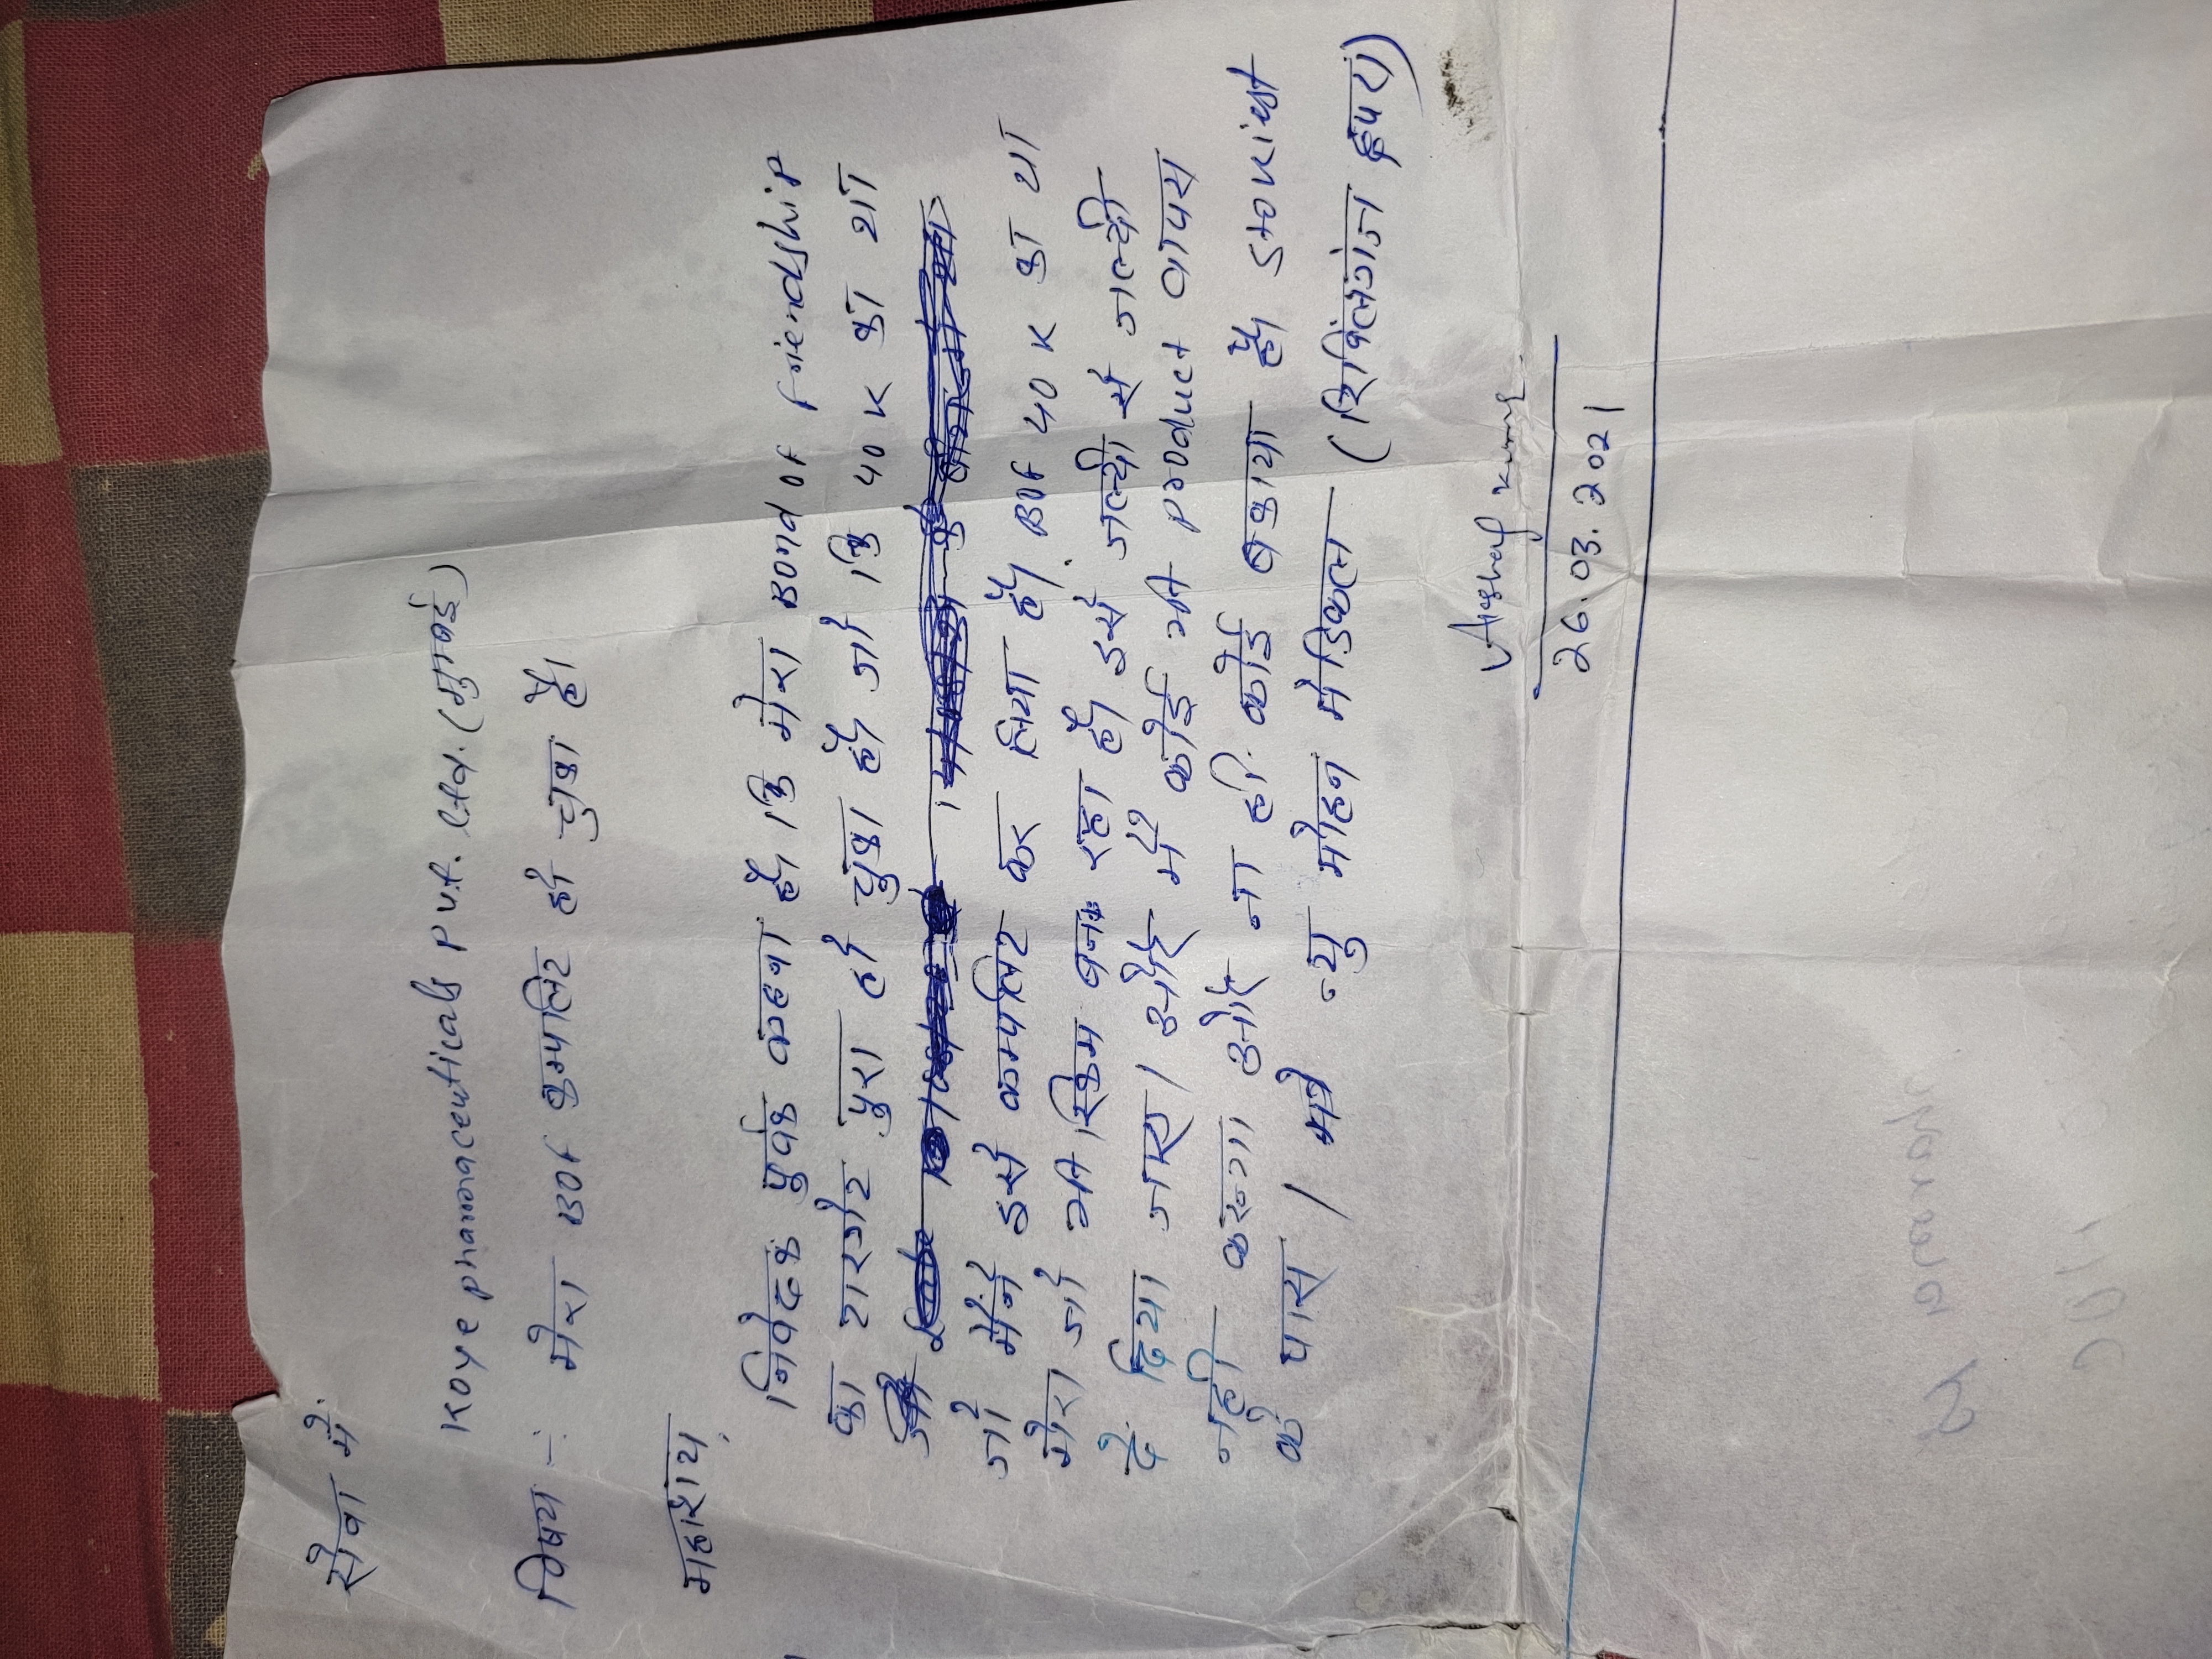 सेवा में
Koye pharmaceuticals Pvt. Ltd. (मुम्बई)
विषय :- मेरा BOF कम्पलिट हो चुका है।
महाशय,
निवेदक पुर्वक कहना है। कि मेरा Bond of friendship
का टारगेट पुरा हो चुका है। जो कि 40 K का था
जो मैंने इसे कम्पलिट कर लिया है। BOF 40 K का था
मेरा जो भी स्किम बनक रहा है। इसे जल्दी से जल्दी
दे दिया जाए। और मैं कोई भी product वापस
नही करूगा और ना ही कोई बकाया है। stokiest
के पास। मे० न्यु मोहन मेडिकल (शिवंलगंज हूपरा)
Kumar
26.03.2021